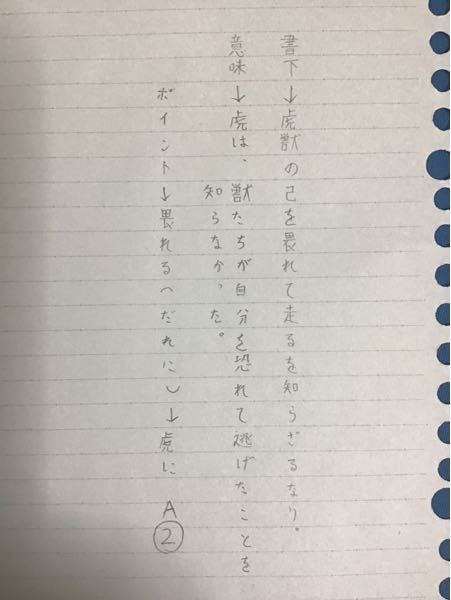 書下→虎獣の己を畏れて走るを知らざるなり。
意味→虎は、獣たちが自分を恐れて逃げたことを
知らなかった。
ポイント→畏れる(だれに)→虎に A②